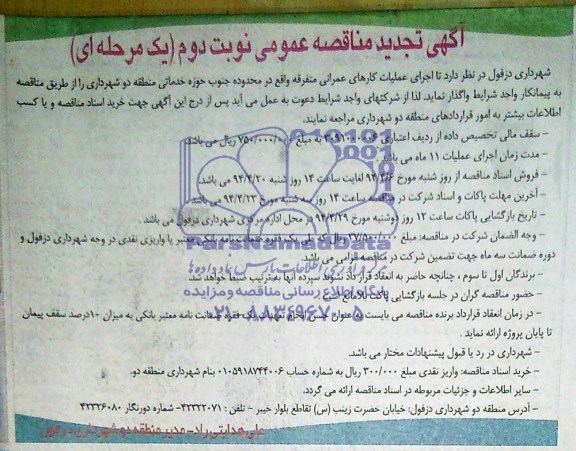 آگهی تجدید مناقصه عمومی نوبت دوم (یک مرحله ای)
شهرداری دزفول در نظر دارد تا اجرای عملیات کارهای عمرانی متفرقه واقع در محدوده جنوب حوزه خدماتی منطقه دو شهرداری را از طریق مناقصه
به پیمانکار واجد شرایط واگذار نماید. لذا از شرکتهای واجد شرایط دعوت به عمل می آید پس از درج این آگهی جهت خرید اسناد مناقصه و یا کسب
اطلاعات بیشتر به امور قراردادهای منطقه دو شهرداری مراجعه نمایند.
– سقف مالی تخصیص داده از ردیف اعتباری به مبلغ ۷۵۰/۰۰۰/۰۰۰ ریال می باشد.
– مدت زمان اجرای عملیات ۱۱ ماه می باشد.
– فروش اسناد مناقصه از روز شنبه مورخ ۹۴/۳/۶ لغایت ساعت ۱۴ روز شنبه ۹۴/۳/۲۰ می باشد.
– آخرین مهلت پاکات و اسناد شرکت در مناقصه ساعت ۱۴ روز سه شنبه مورخ ۹۴/۳/۲۳ می باشد.
– تاریخ بازگشایی پاکات ساعت ۱۲ روز دوشنبه مورخ ۹۴/۳/۲۹ در محل اداره مرکزی شهرداری دزفول می باشد.
– وجه الضمان شرکت در مناقصه: مبلغ ۳۷/۵۰۰/۰۰۰ ریال که طی یک فقره ضمانت نامه بانکی معتبر یا واریزی نقدی در وجه شهرداری دزفول و
دوره ضمانت سه ماه جهت تضمین شرکت در مناقصه الزامی می باشد.
– برندگان اول تا سوم، چنانچه حاضر به انعقاد قرارداد نشوند سپرده آنها به ترتیب ضبط خواهد شد.
– حضور مناقصه گران در جلسه بازگشایی پاکت بلامانع است.
– در زمان انعقاد قرارداد برنده مناقصه می بایست به عنوان حسن انجام تعهدات یک فقره ضمانت نامه معتبر بانکی به میزان ۱۰درصد سقف پیمان
تا پایان پروژه ارائه نماید.
– شهرداری در رد یا قبول پیشنهادات مختار می باشد.
– خرید اسناد مناقصه: واریز نقدی مبلغ ۳۰۰/۰۰۰ ریال به شماره حساب ۰۱۰۵۹۱۸۷۴۴۰۰۶ بنام شهرداری منطقه دو.
– سایر اطلاعات و جزئیات مربوطه در اسناد مناقصه ارائه می گردد.
– آدرس منطقه دو شهرداری دزفول: خیابان حضرت زینب (س) تقاطع بلوار خیبر – تلفن: ۴۲۳۲۲۰۷۱– شماره دورنگار ۴۲۳۲۶۰۸۰
علی هدایتی راد–مدیر منطقه دو شهرداری دزفول
ParsNamadData
مرکز فرآوری اطلاعات پارس نماد داده ها
پایگاه اطلاع رسانی مناقصه و مزایده